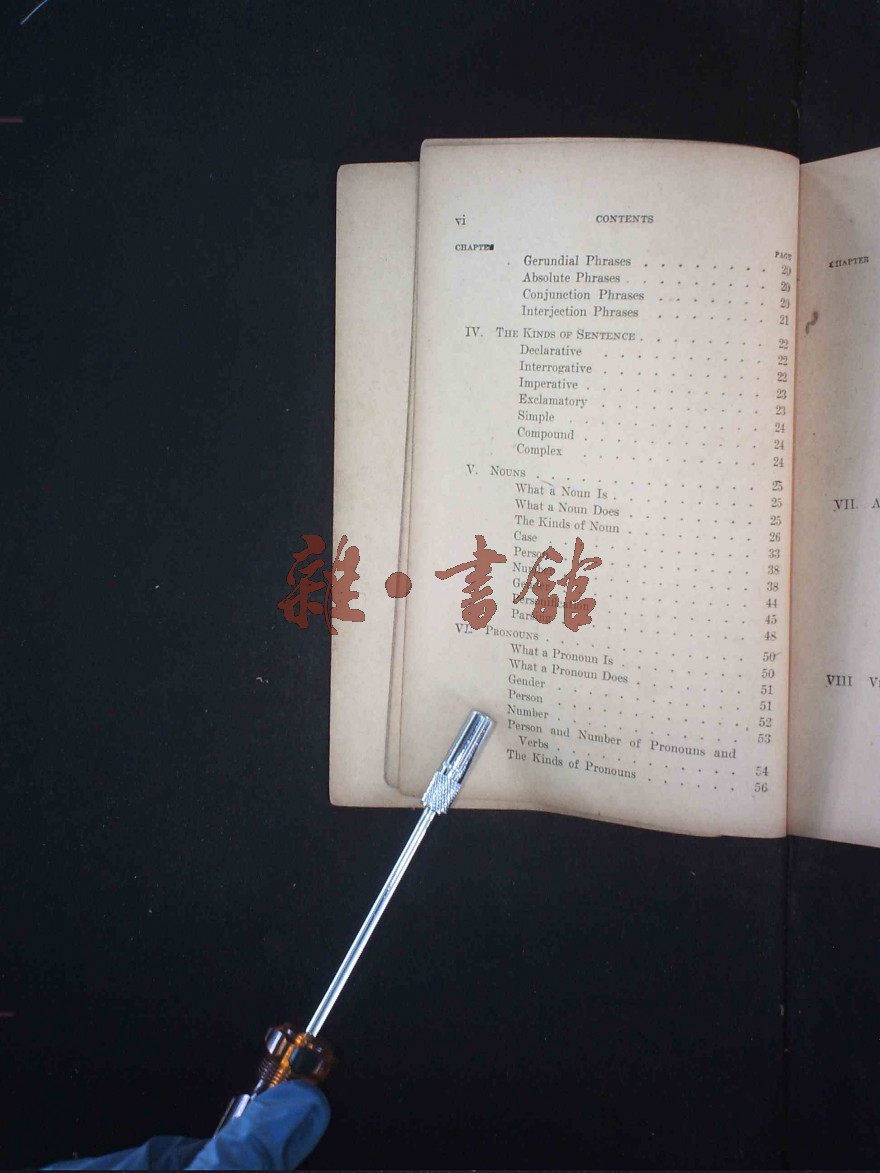 vi CONTENTS
CHAPTER PAGE
Gerundial Phrases . . . . . . . . 20
Absolute Phrases . . . . . . . . 20
Conjunction Phrases . . . . . . . 20
Interjection Phrases . . . . . . . 21
IV. THE KINDS OF SENTENCE . . . . . . . 22
Declarative . . . . . . . . . 22
Interrogative . . . . . . . . . 22
Imperative . . . . . . . . . 23
Exclamatory . . . . . . . . . 23
Simple . . . . . . . . . 24
Compound . . . . . . . . . 24
Complex . . . . . . . . . 24
V. NOUNS . . . . . . . . . 25
What a Noun Is . . . . . . . . 25
What a Noun Does . . . . . . . . 25
The Kinds of Noun . . . . . . . . 26
Case . . . . . . . . . 33
Person . . . . . . . . . 38
Number . . . . . . . . . 38
Gender . . . . . . . . . 44
Personification . . . . . . . . 45
Parsing . . . . . . . . . 48
VI. PRONOUNS . . . . . . . . . 50
What a Pronoun Is . . . . . . . . 50
What a Pronoun Does . . . . . . . 51
Gender . . . . . . . . . 51
Person . . . . . . . . . 52
Number . . . . . . . . . 53
Person and Number of Pronouns and
Verbs . . . . . . . . . 54
The Kinds of Pronouns . . . . . . . 56
CHAPTER
VII.
VIII
雜·書館